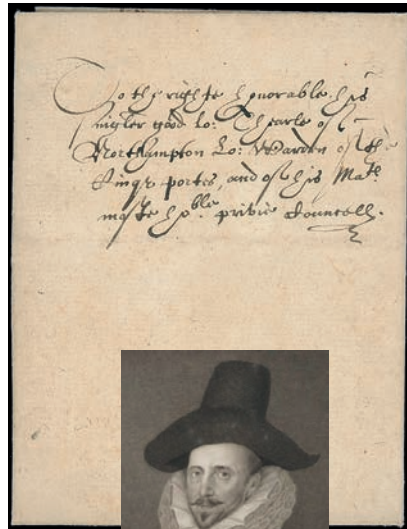 To the righte honorable his
singler good Lo: Thearle of
Northampton Lo: Warden of the
Cinque portes, and of his Matꝭ
moste hoble. privie Councell.